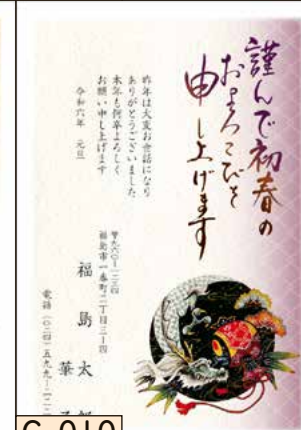 謹んで初春の
およろこびを
申し上げます
昨年は大変お世話になり
ありがとうございました
本年も何卒よろしく
お願い申し上げます
令和六年 元旦
〒九六〇-一二三四
福島市一番町二丁目三-四
福島太
華
電話(〇二四)五九九-一二